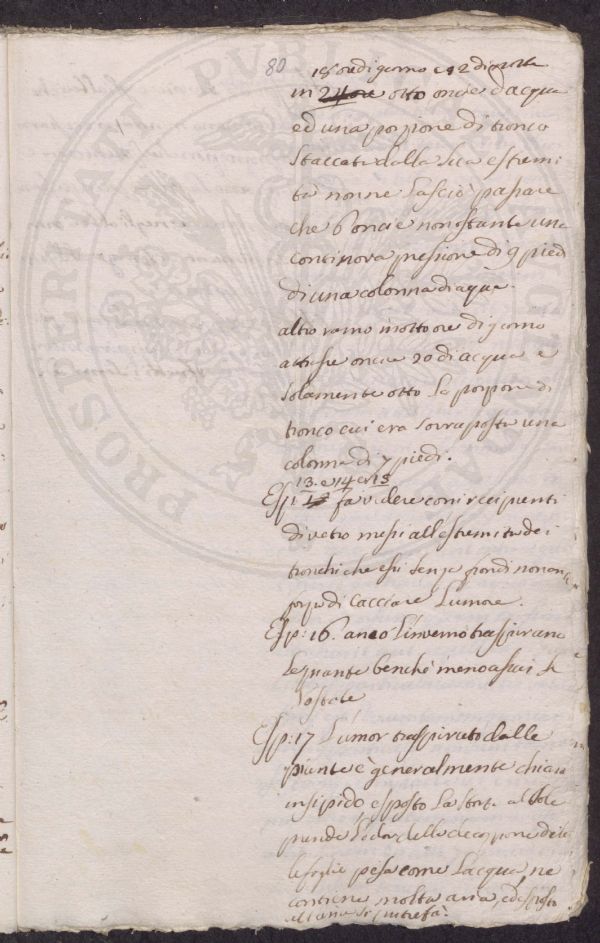 80
18 ore di giorno e 12 di notte
in 24 ore otto oncie d'acqua
ed una porzione di tronco
staccati dalla sua estremi
tà non ne lasciò passare
che 6 oncie nonostante una
continova pressione di 9 pied
di una colonna di aqua.
altro ramo in otto ore di giorno
attrasse oncie 20 di acqua e
solamente otto la porzione di
tronco cui era sovraposta una
colonna di 7 piedi.
13. e 14 e 15
Esp: fa vedere con i recipienti
di vetro messi all'estremità dei
tronchi che essi senza frondi non an
forza di cacciare l'umore.
Esp: 16. anco l'inverno traspirano
le piante benché meno assai che
l'estate
Esp: 17 L'umor traspirato dalle
piante è generalmente chiaro
insipido esposto la state al sole
prende l'odor della decozione del
le foglie pesa come l'acqua ne
contiene molta aria, ed esposto
all'aria si putrefà.
PROSPERITATI PVBLICAE